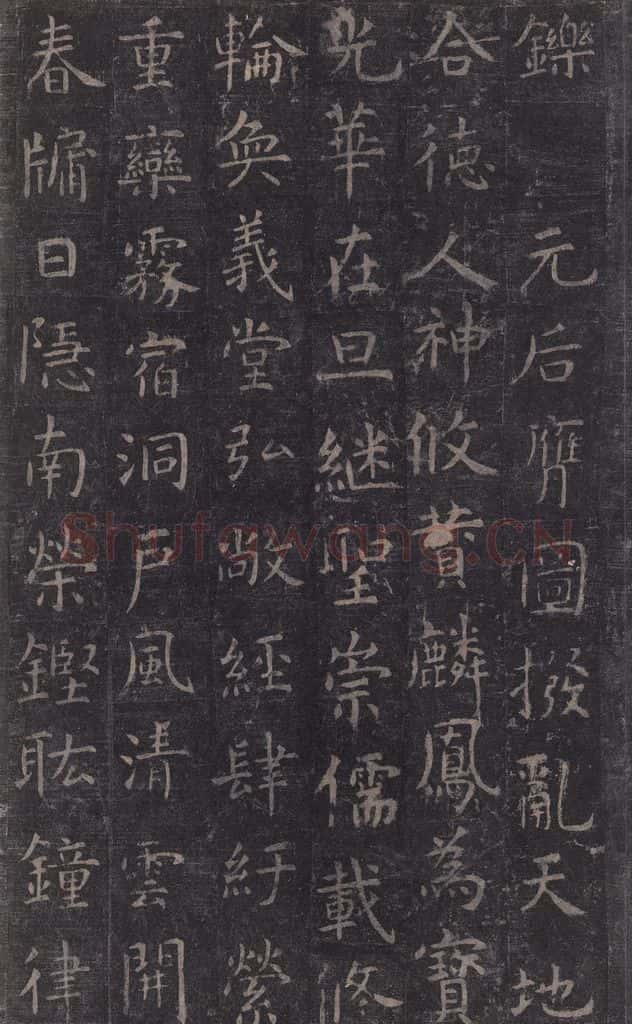 鑠 元后膺圖撥亂天地
合德人神攸賛麟鳳為寶
光華在旦継聖崇儒載修
輪奐義堂弘敞經肆紆縈
重欒霧宿洞戶風清雲開
春牖日隱南榮鏗耾鐘律
Shufawang.CN